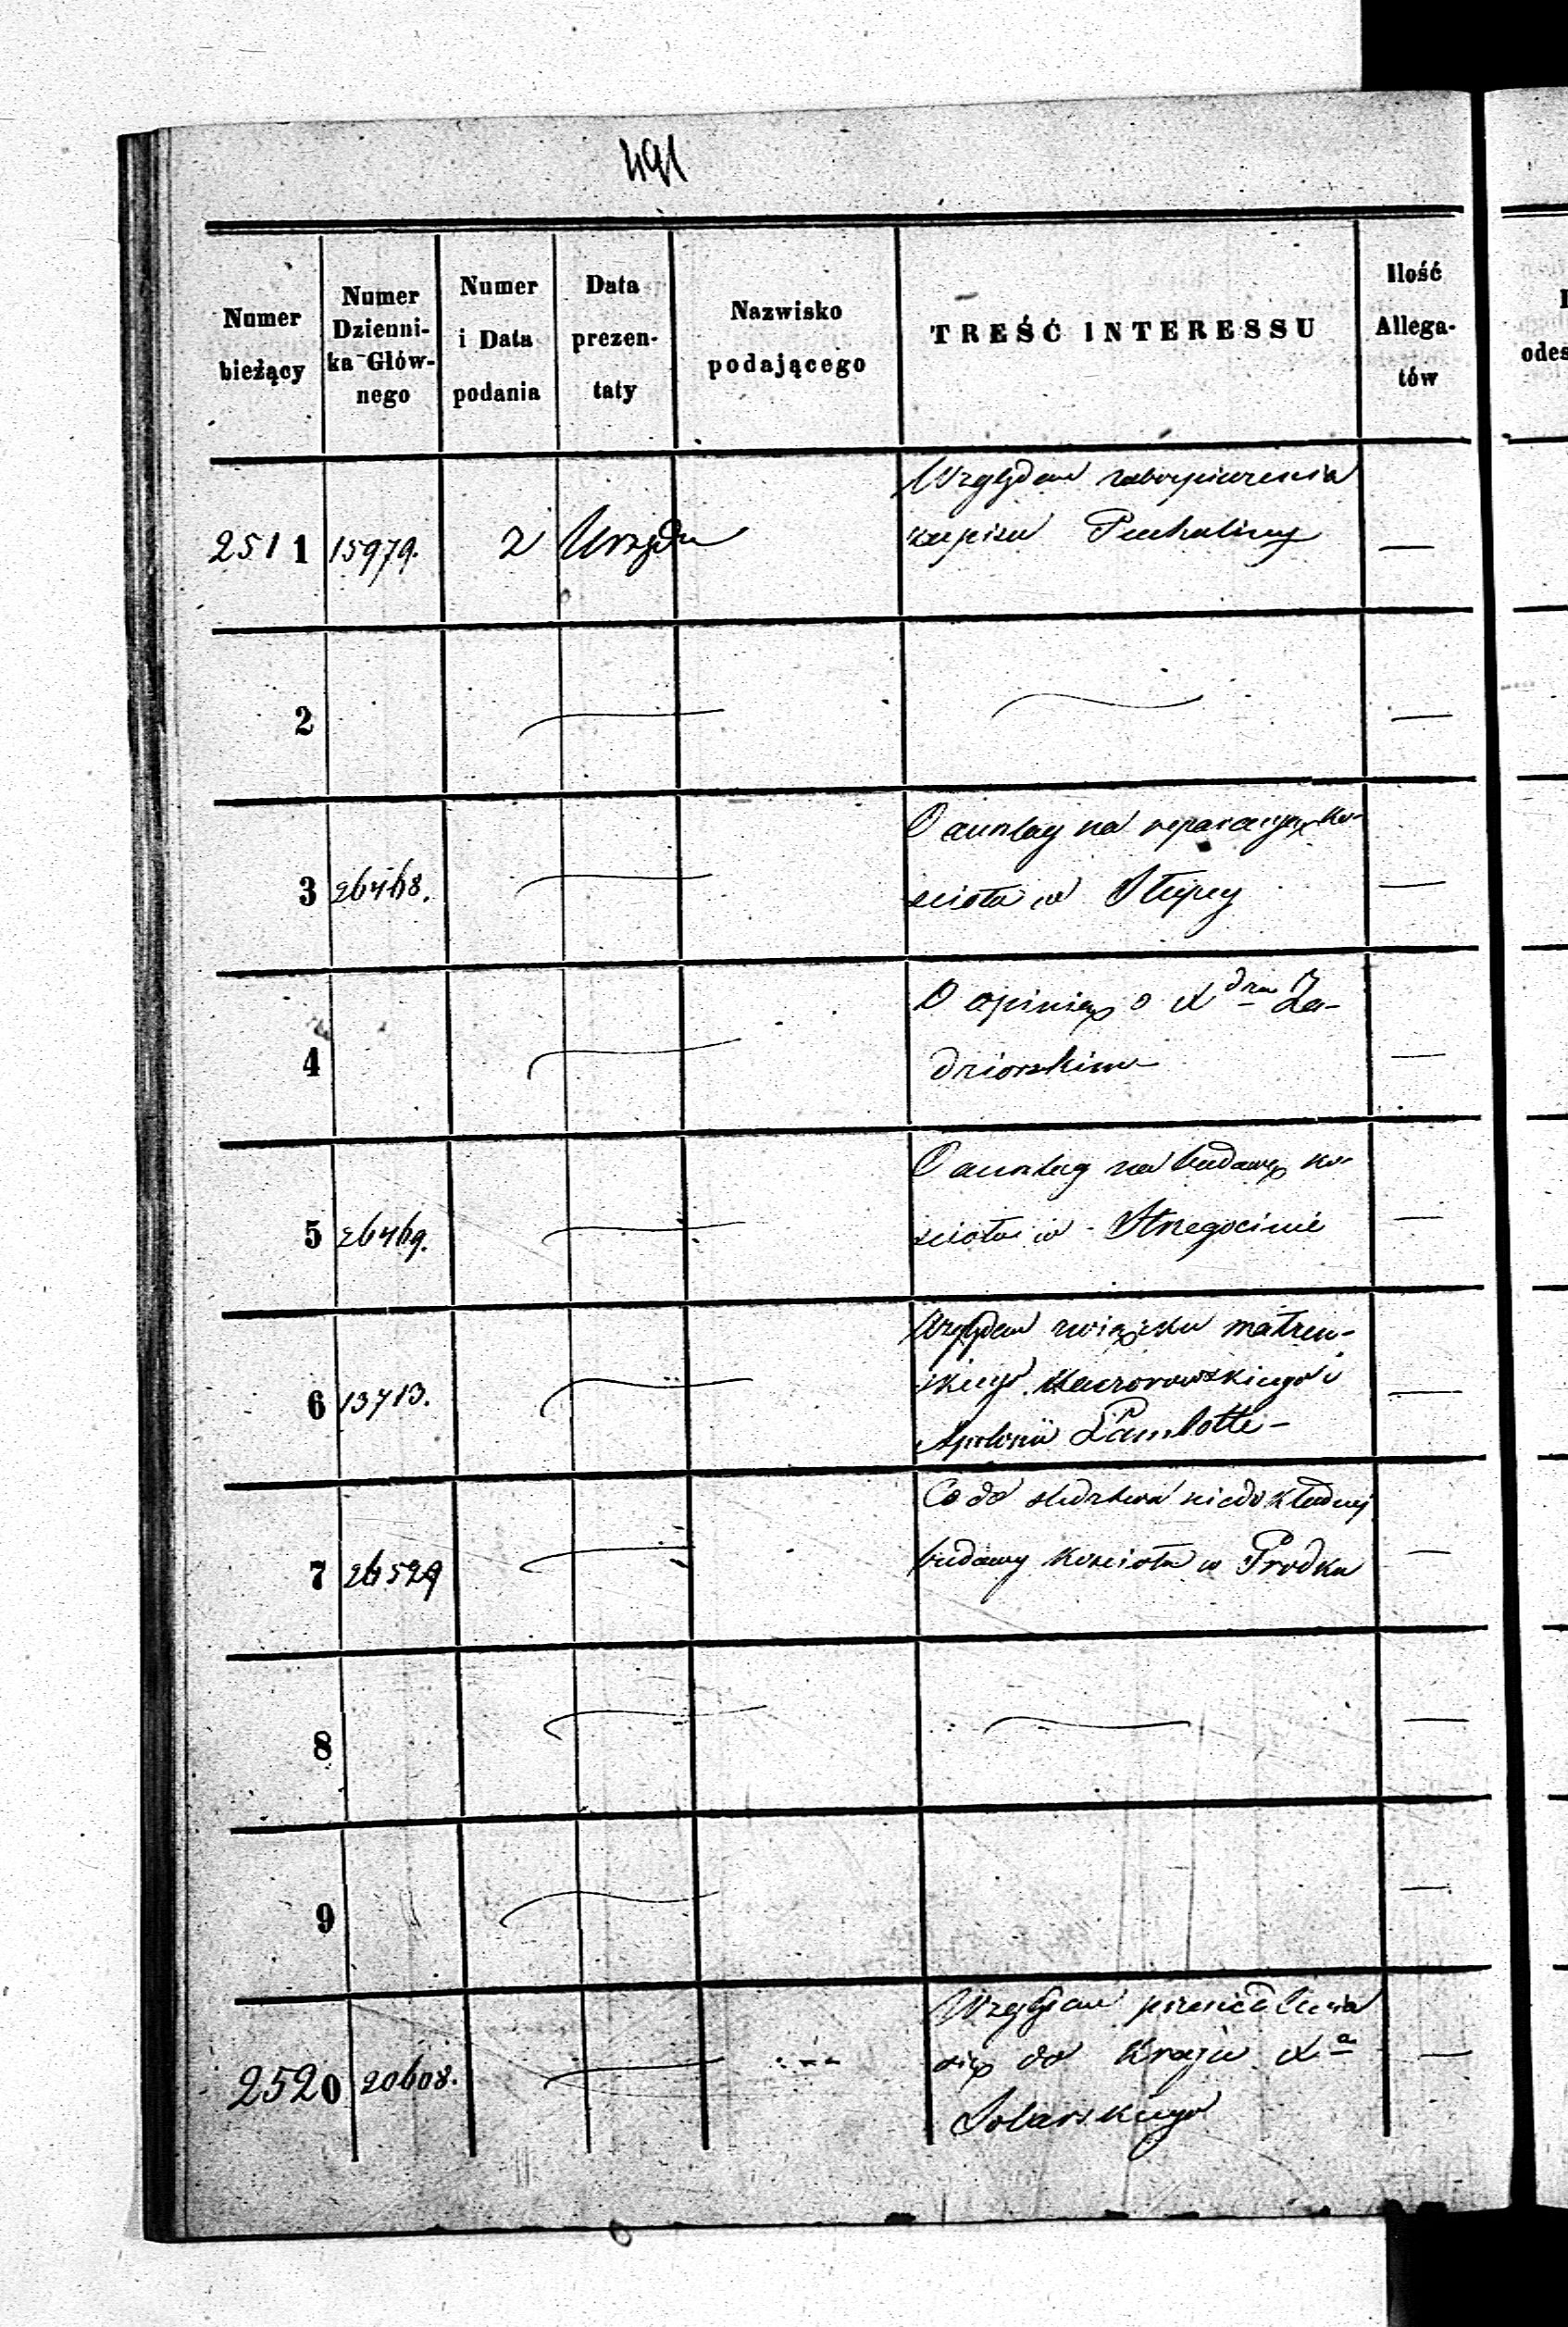 491
Numer bieżący
Numer Dzienni-ka Głów-nego
Numer i Data podania
Data prezen-taty
Nazwisko podającego
TREŚĆ INTERESSU
Ilość Allega-tów
odes
2511 15979. Z Urzędu Względem zabespieczenia
zapisu —
2 —
3 26468. O anszlag na reparacyę ko-
scioła w Słupcy —
4 O opinię o X dzu Za-
dziorskim —
5 26469. O anszlag na budowę ko-
scioła w Strzegocinie —
6 13713. Względem związku małżeń-
skiego i
Apolonii Lambotte —
7 26529 Co do śledztwa niedokładnej
budowy kościoła w Prodku —
8 —
9 —
2520 20608. Względem
się do Kraju Xa —
Solarskiego